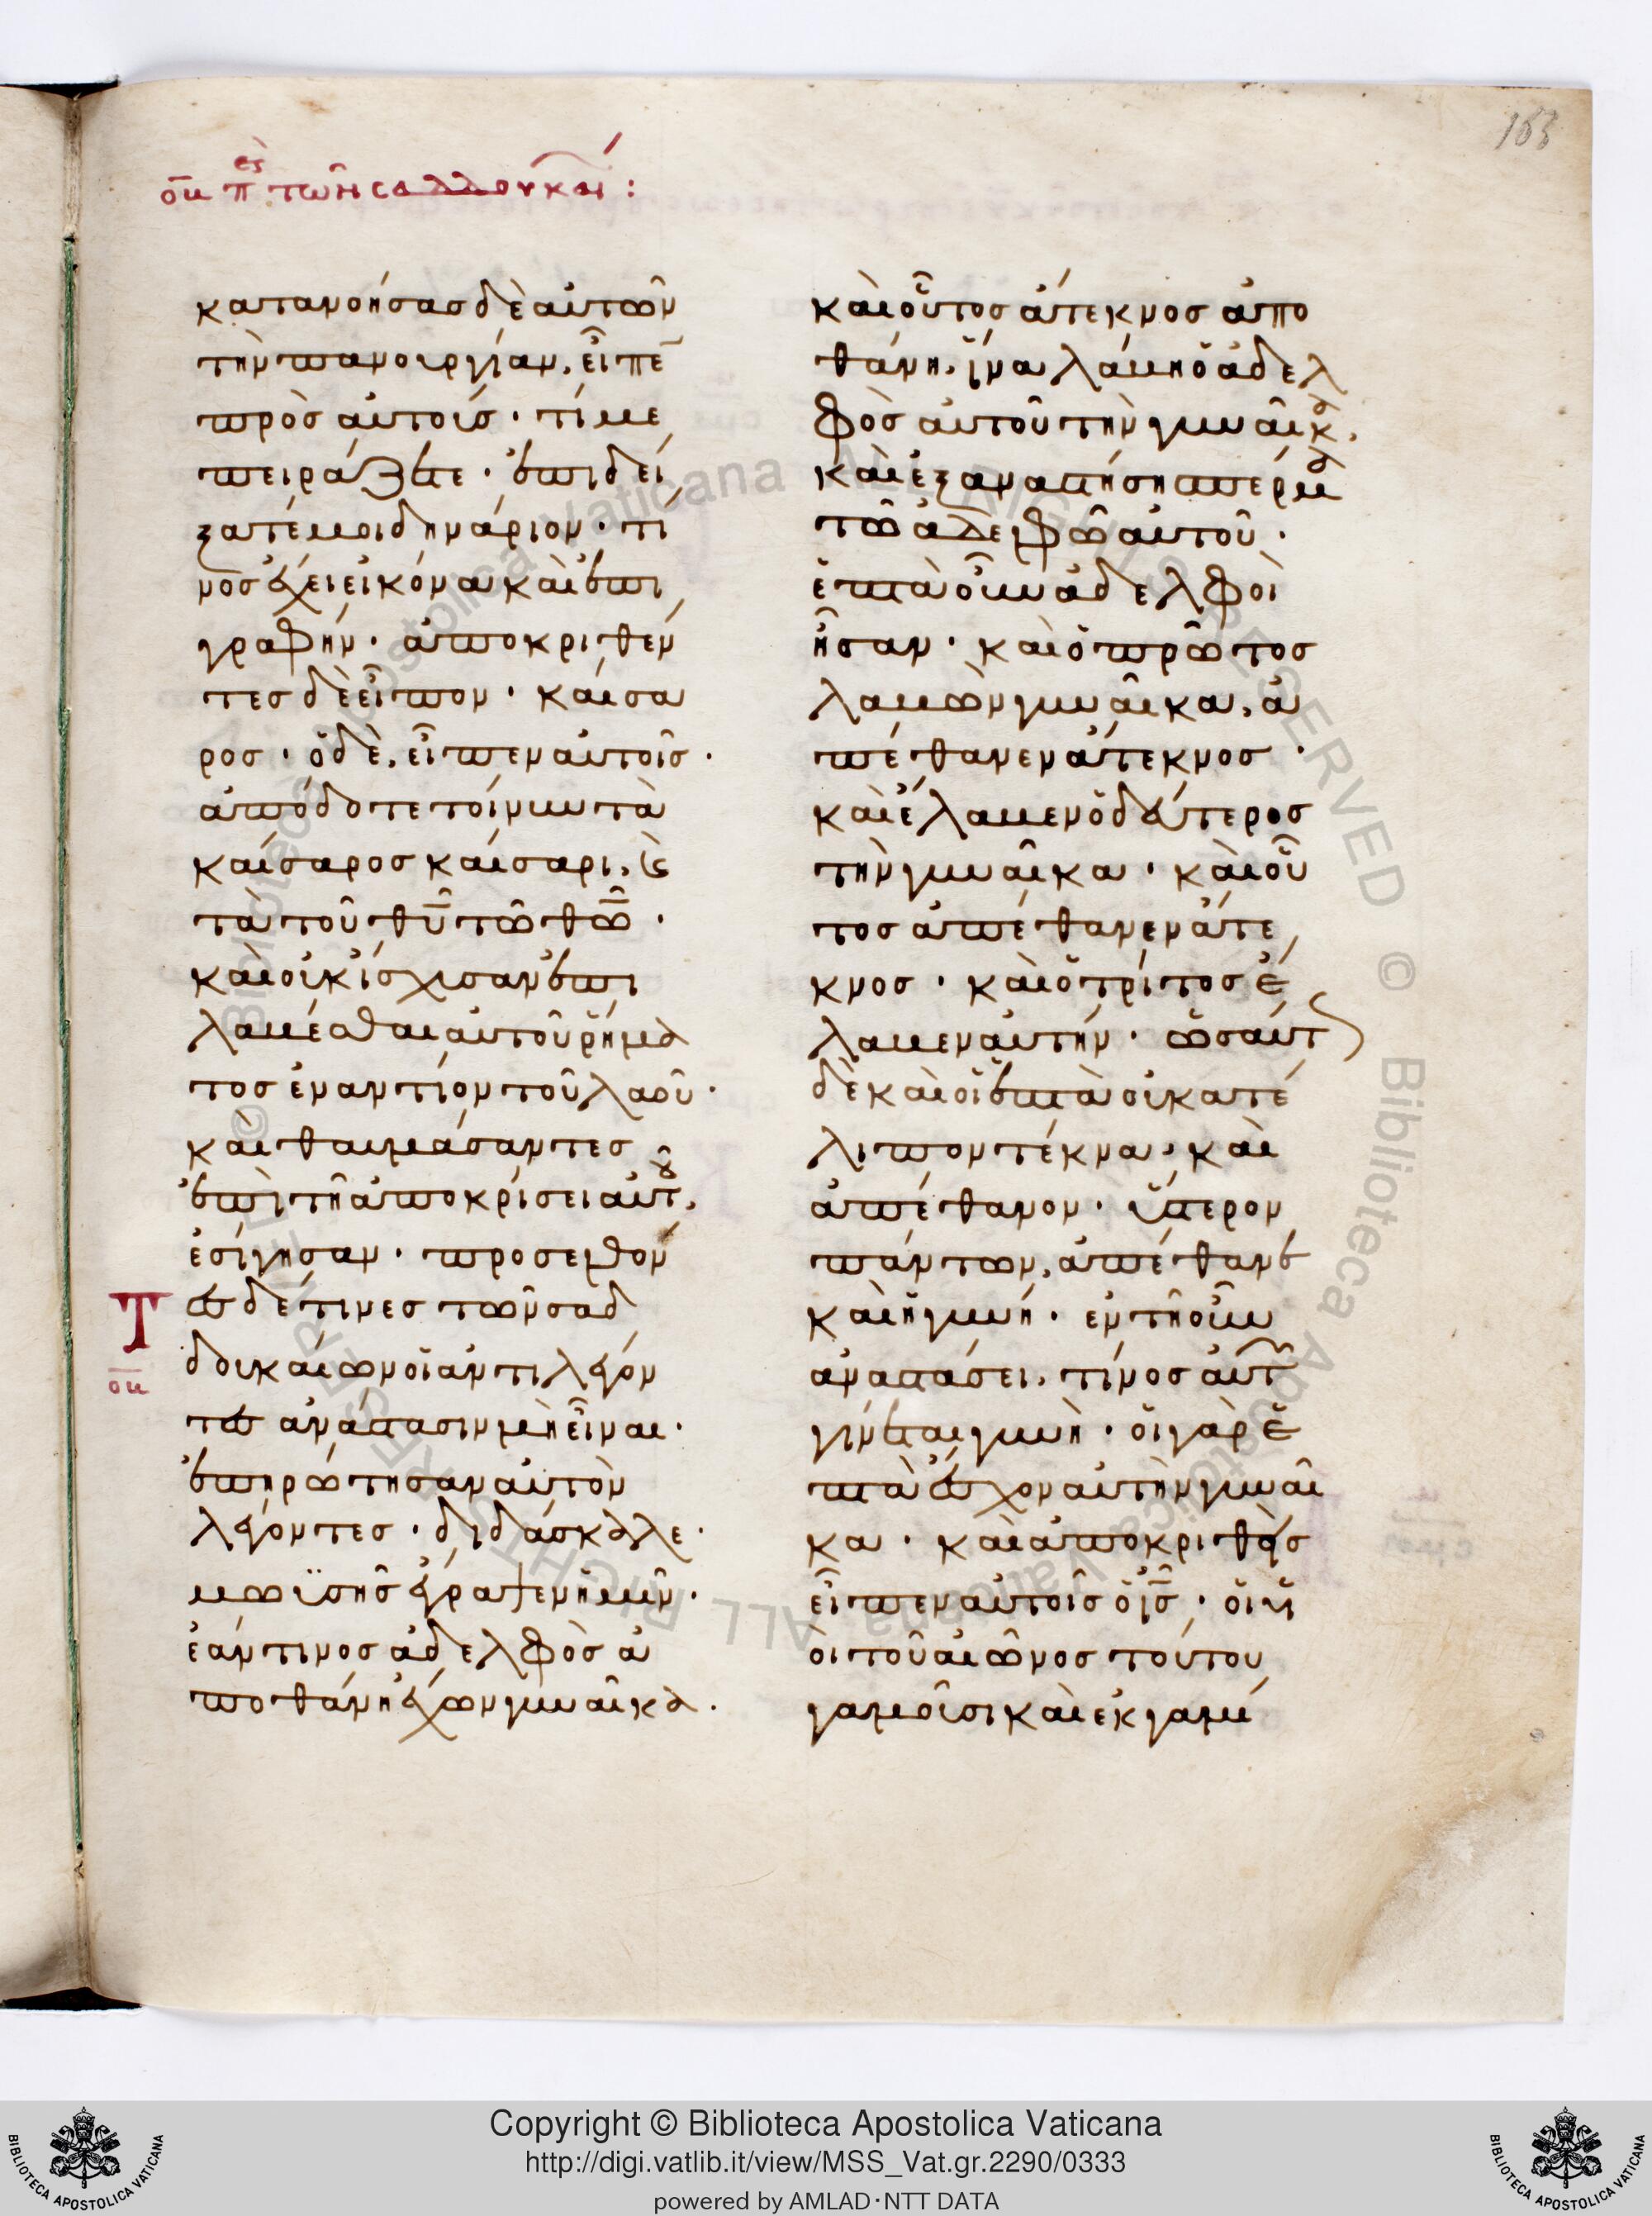 163
οβ πὲρ τῶν σαδδουκαί:
κατανοήσας δὲ αὐτῶν
τὴν πανουργίαν, εἶπε̄
πρὸς αὐτούς· τί με
πειράζετε· ἐπιδεί
ξατέ μοι δηνάριον· τί
νος ἔχει εἰκόνα καὶ ἐπι
γραφήν· ἀποκριθέν
τες δὲ εἶπον· καίσα
ρος· ὁ δὲ, εἶπεν αὐτοῖς·
ἀπόδοτε τοίνυν τὰ
καίσαρος καίσαρι, ϗ̀
τὰ τοῦ θ̅υ̅ τῶ θ̅ω̅·
καὶ οὐκ ἴσχυσαν ἐπι
λαβέσθαι αὐτοῦ ῥήμα
τος ἐναντίον τοῦ λαοῦ·
καὶ θαυμάσαντες
ἐπὶ τῆ ἀποκρίσει αὐτοῦ,
ἐσίγησαν· προσελθόν
Τ
τες δέ τινες τῶν σαδ
οβ
δουκαίων οἱ ἀντιλέγον
τες ἀνάστασιν μὴ εἶναι·
ἐπηρώτησαν αὐτὸν
λέγοντες· διδάσκαλε·
μωϋσῆς ἔγραψεν ἡμῖν·
ἐάν τινος ἀδελφὸς ἀ
ποθάνη ἔχων γυναῖκα·
καὶ οὗτος ἄτεκνος ἀπο
θάνη, ἵνα λάβη ὁ ἀδελ
φὸς αὐτοῦ τὴν γυναῖκα,
καὶ ἐξαναστήση σπέρμα
τῶ ἀδελφῶ αὐτοῦ·
ἑπτὰ οὖν ἀδελφοὶ
ἦσαν· καὶ ὁ πρῶτος
λαβὼν γυναῖκα, ἀ
πέθανεν ἄτεκνος·
καὶ ἔλαβεν ὁ δεύτερος
τὴν γυναῖκα· καὶ οὗ
τος ἀπέθανεν ἄτε
κνος· καὶ ὁ τρίτος ἔ
λαβεν αὐτήν· ὡσαύτως
δὲ καὶ οἱ ἑπτὰ οὐ κατέ
λιπον τέκνα, καὶ
ἀπέθανον· ὕστερον
πάντων, ἀπέθανε
καὶ ἡ γυνή· ἐν τῆ οὖν
ἀναστάσει, τίνος αὐτῶν
γίνεται γυνὴ· οἱ γὰρ ἑ
πτὰ ἔσχον αὐτὴν γυναῖ
κα· καὶ ἀποκριθεὶς
εἶπεν αὐτοῖς ὁ ι̅ς̅· οἱ υἱ
οὶ τοῦ αἰῶνος τούτου
γαμοῦσι καὶ ἐκγαμί
Copyright © Biblioteca Apostolica Vaticana
http://digi.vatlib.it/view/MSS_Vat.gr.2290/0333
powered by AMLAD·NTT DATA